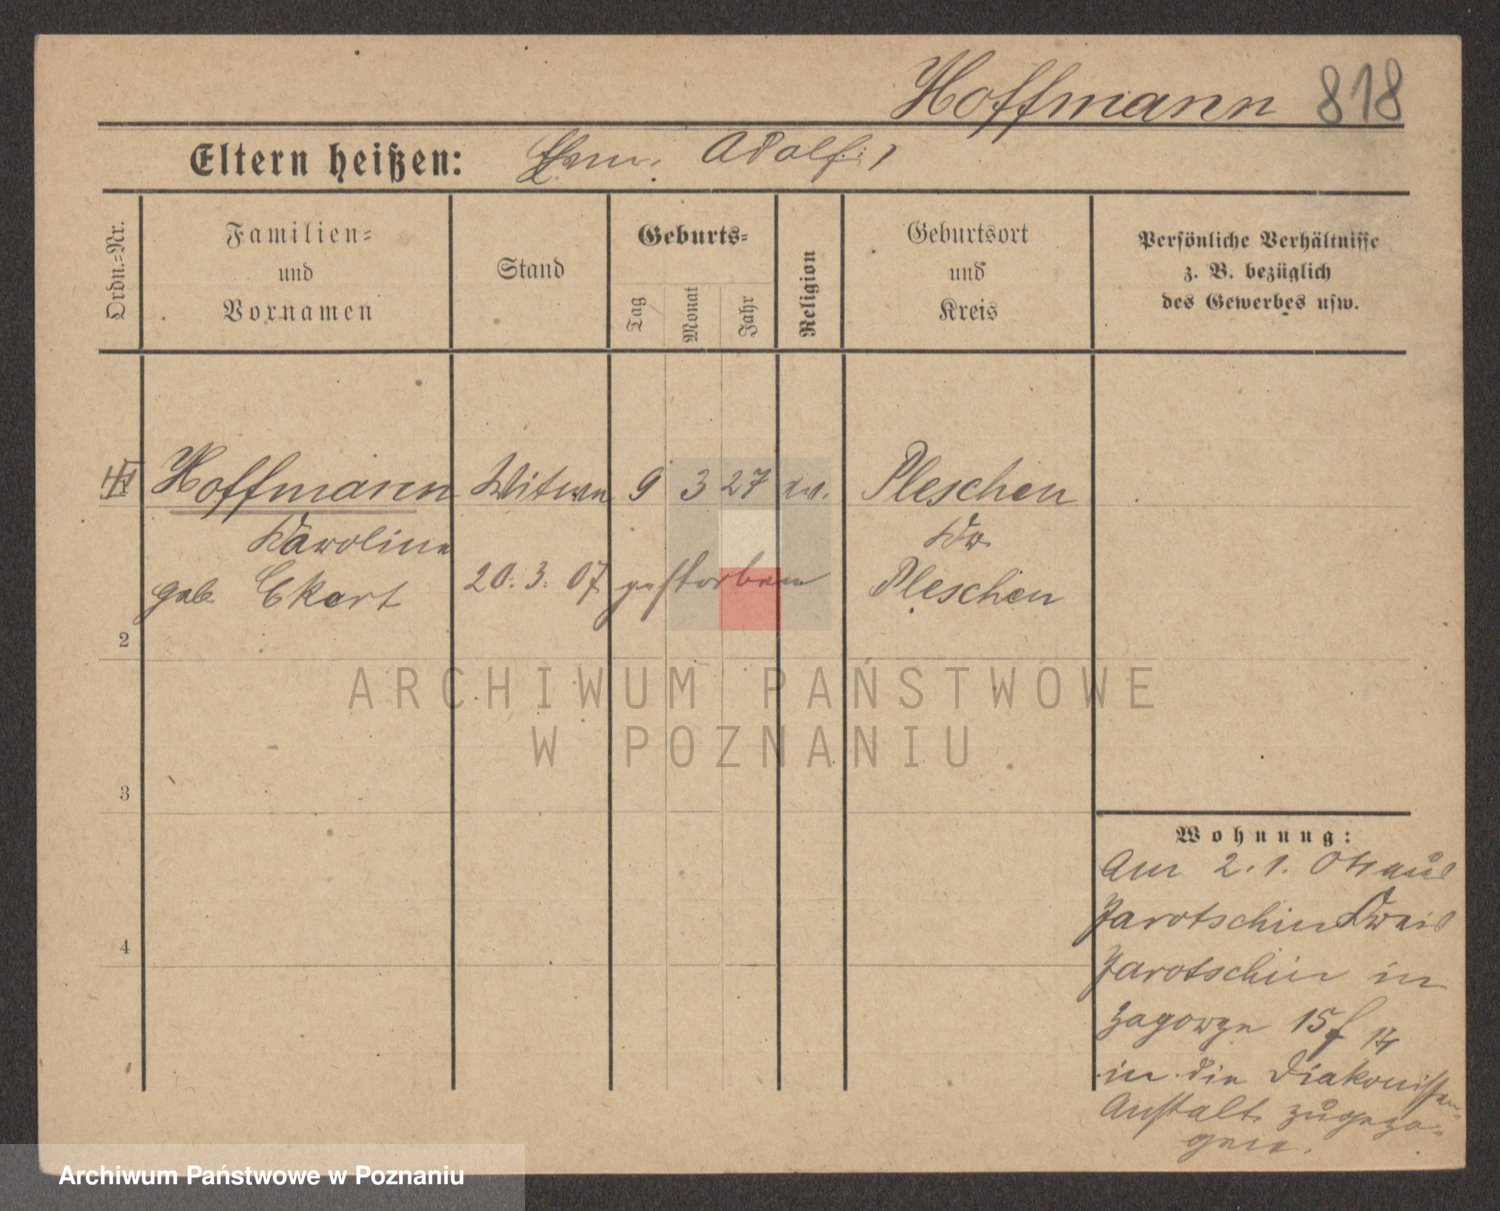 Hoffmann 818
Eltern heißen: Adolf,
Ordn.=Nr.
Familien=
und
Vornamen
Stand
Geburts=
Tag
Monat
Jahr
Religion
Geburtsort
und
Kreis
Persönliche Verhältnisse
z. B. bezüglich
des Gewerbes usw.
Hoffmann Witwe 9 3 27 ev. Pleschen
Karoline Kr.
geb. Ekert 20. 3. 07 gestorben Pleschen
2
3
4
Wohnung:
Am 2. 1. 04 aus
Jarotschin Kreis
Jarotschin in
Zagorze 15 f 14
in die Diakonissen=
Anstalt zugezo=
gen.
ARCHIWUM PAŃSTWOWE
W POZNANIU
Archiwum Państwowe w Poznaniu